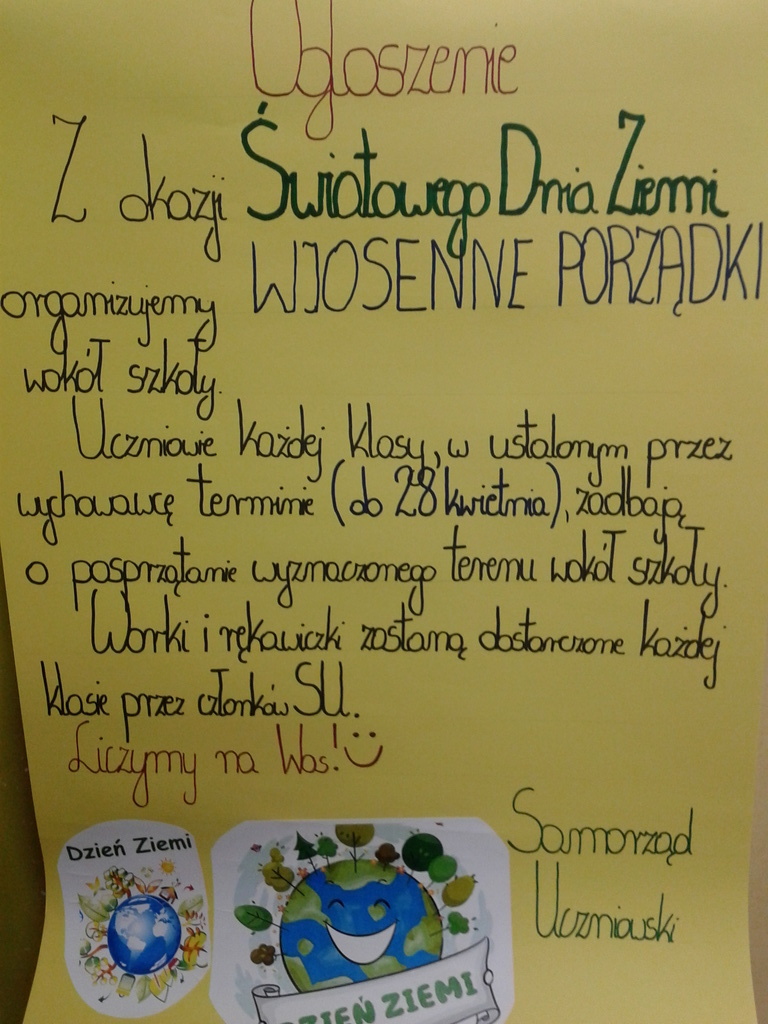 Ogłoszenie
Z okazji Światowego Dnia Ziemi
organizujemy WIOSENNE PORZĄDKI
wokół szkoły.
Uczniowie każdej klasy, w ustalonym przez
wychowawcę terminie (do 28 kwietnia), zadbają
o posprzątanie wyznaczonego terenu wokół szkoły.
Worki i rękawiczki zostaną dostarczone każdej
klasie przez członków SU.
Liczymy na Was! :)
Samorząd
Uczniowski
Dzień Ziemi
DZIEŃ ZIEMI